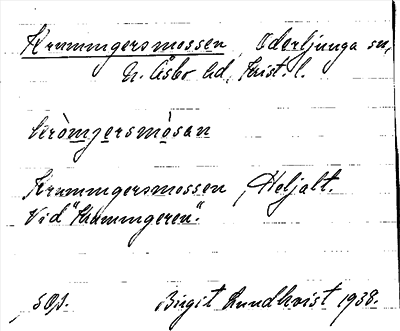 Krummgersmossen, Oderljunga sn,
N. Åsbo hd, Krist. l.
kròmgersmòsan
Krummgersmossen, Heljalt.
Vid "Krummgeren".
Birgit Lundkvist 1938.